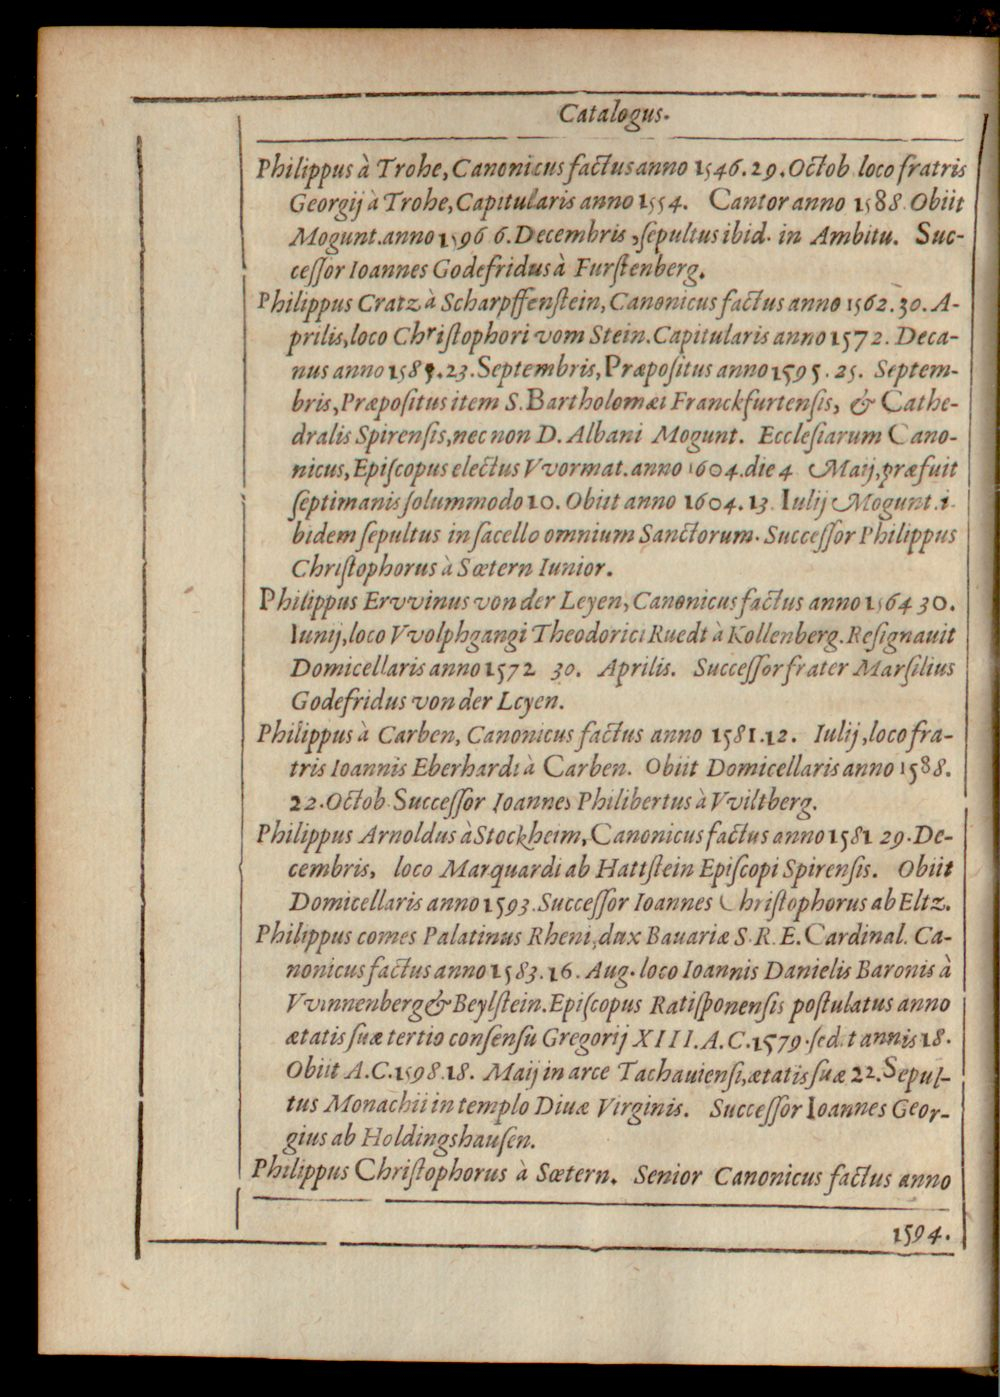 Catalogus.
Philippus à Trohe, Canonicus factus anno 1546. 29. Octob. loco fratris
Georgij à Trohe, Capitularis anno 1554. Cantor anno 1588. Obiit
Mogunt. anno 1596 6. Decembris, ſepultus ibid. in Ambitu. Suc-
ceſſor Ioannes Godefridus à Furſtenberg.
Philippus Cratz à Scharpffenſtein, Canonicus factus anno 1562. 30. A-
prilis, loco Chriſtophori vom Stein. Capitularis anno 1572. Deca-
nus anno 1585. 23. Septembris, Præpoſitus anno 1595. 25. Septem-
bris, Præpoſitus item S. Bartholomæi Franckfurtenſis, & Cathe-
dralis Spirenſis, nec non D. Albani Mogunt. Eccleſiarum Cano-
nicus, Epiſcopus electus VVormat. anno 1604. die 4 Maij, præfuit
ſeptimanis ſolummodo 10. Obiit anno 1604. 13. Iulij Mogunt. i-
bidem ſepultus in ſacello omnium Sanctorum. Succeſſor Philippus
Chriſtophorus à Sœtern Iunior.
Philippus Ervvinus von der Leyen, Canonicus factus anno 1564 30.
Iunij, loco VVolphgangi Theodorici Ruedt à Kollenberg. Reſignauit
Domicellaris anno 1572 30. Aprilis. Succeſſor frater Marſilius
Godefridus von der Leyen.
Philippus à Carben, Canonicus factus anno 1581. 12. Iulij, loco fra-
tris Ioannis Eberhardi à Carben. Obiit Domicellaris anno 1588.
22. Octob. Succeſſor Ioannes Philibertus à VViltberg.
Philippus Arnoldus à Stockheim, Canonicus factus anno 1581 29. De-
cembris, loco Marquardi ab Hattſtein Epiſcopi Spirenſis. Obiit
Domicellaris anno 1593. Succeſſor Ioannes Chriſtophorus ab Eltz.
Philippus comes Palatinus Rheni, dux Bauariæ S. R. E. Cardinal. Ca-
nonicus factus anno 1583. 16. Aug. loco Ioannis Danielis Baronis à
VVinnenberg & Beylſtein. Epiſcopus Ratiſponenſis poſtulatus anno
ætatis ſuæ tertio conſenſu Gregorij XIII. A. C. 1579. ſedit annis 18.
Obiit A. C. 1598. 18. Maij in arce Tachauienſi, ætatis ſuæ 22. Sepul-
tus Monachii in templo Diuæ Virginis. Succeſſor Ioannes Geor-
gius ab Holdingshauſen.
Philippus Chriſtophorus à Sœtern. Senior Canonicus factus anno
1594.